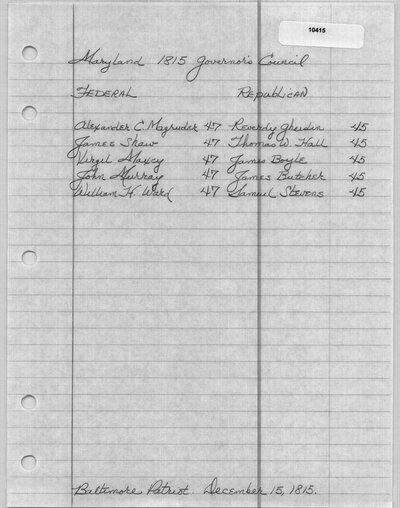 10415
Maryland 1815 Governor's Council
FEDERAL Republican
Alexander C. Magruder 47 Reverdy Ghiselin 45
James Shaw 47 Thomas W. Hall 45
Virgil Maxcy 47 James Boyle 45
John Murray 47 James Butcher 45
William H. Ward 47 Samuel Stevens 45
Baltimore Patriot. December 15, 1815.